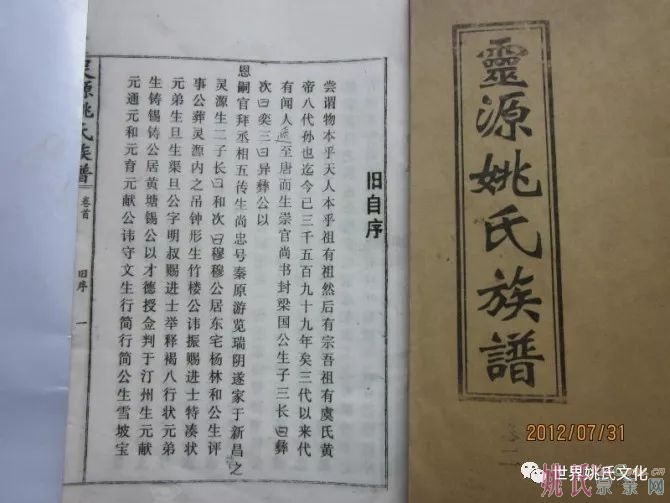 旧自序
尝谓物本乎天人本乎祖有祖然后有宗吾祖有虞氏黄
帝八代孙也迄今已三千五百九十九年矣三代以来代
有闻人遥至唐而生崇官尚书封梁国公生子三长曰彝
次曰奕三曰异彝公以
恩嗣官拜丞相五传生尚忠号秦原游览瑞阴遂家于新昌之
灵源生二子长曰和次曰穆穆公居东宅杨林和公生评
事公葬灵源内之吊钟形生竹楼公讳振赐进士特凑状
元弟生旦生渠旦公字明叔赐进士举释褐八行状元弟
生铸锡铸公居黄塘锡公以才德授佥判于汀州生元献
元通元和元育元献公讳守文生行简行简公生雪坡宝
灵源姚氏族谱
卷首
旧序
一
靈源姚氏族譜
卷一
2012/07/31
世界姚氏文化
姚氏
宗亲网